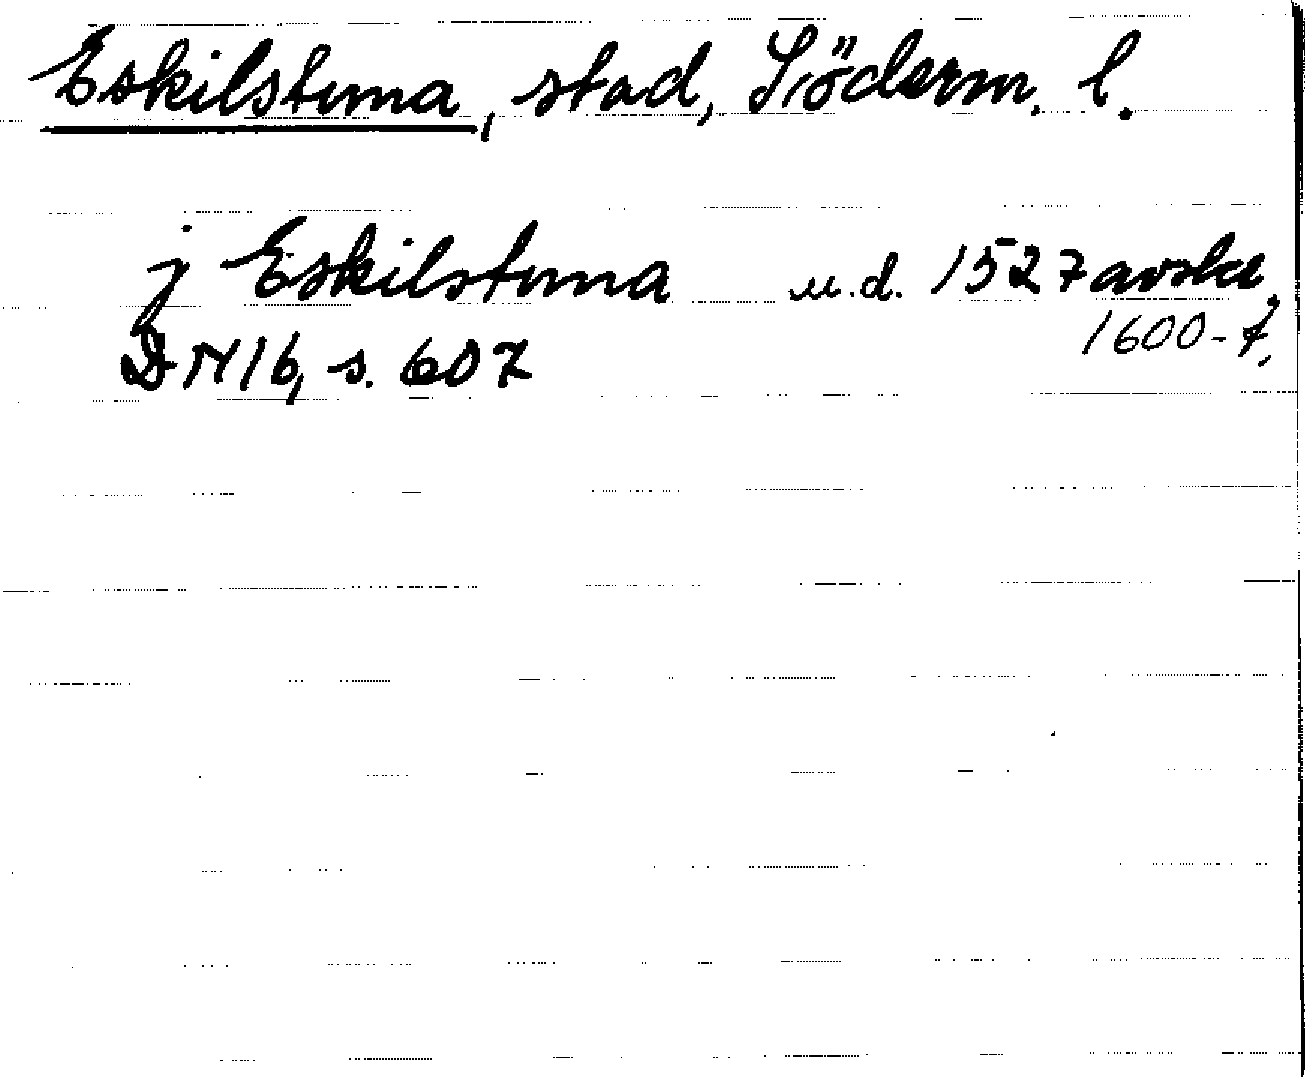 Eskilstuna, stad, Söderm. l.
j Eskilstuna u.d. 1527 avskr.
1600-t.
DN 16, s. 607